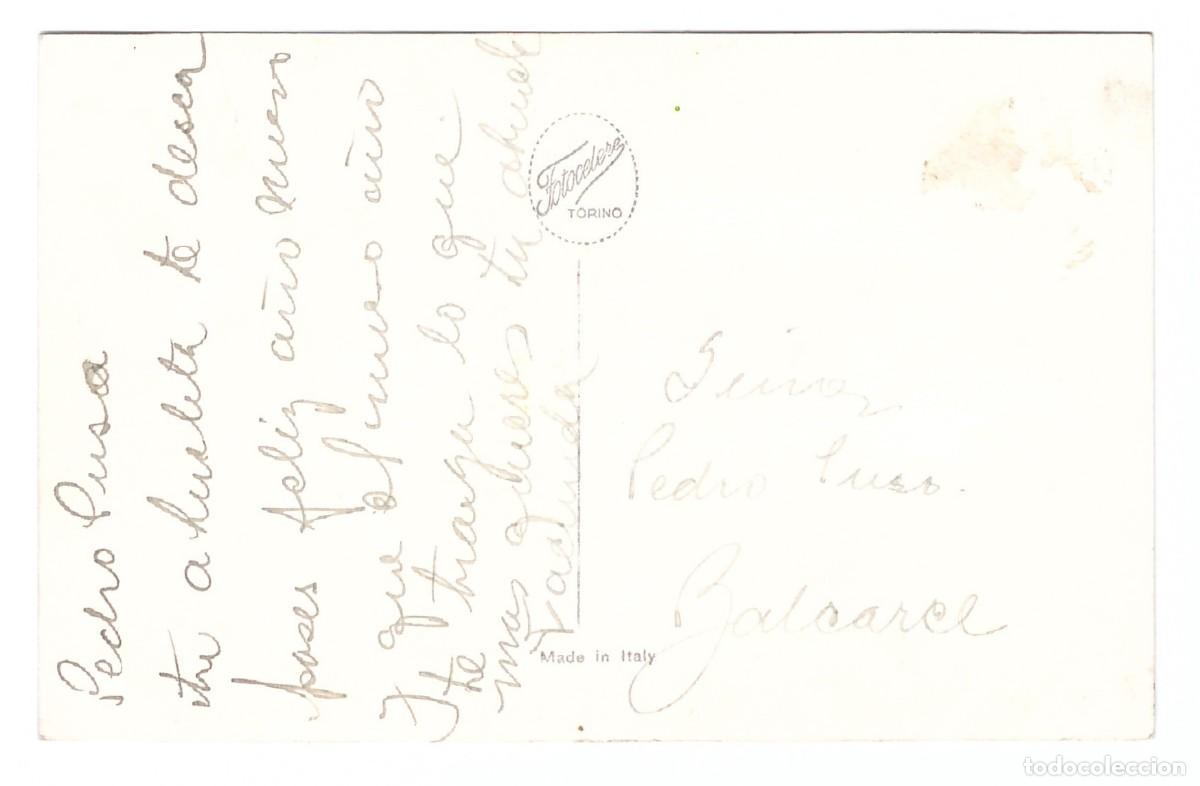 Pedro Pusa
tu abuelita te desea
pases feliz año nuevo
y que el nuevo año
te traiga lo que
mas quieres tu abuela
Fotocelere
TORINO
Pedro Puso.
Balcarce
Made in Italy
todocoleccion